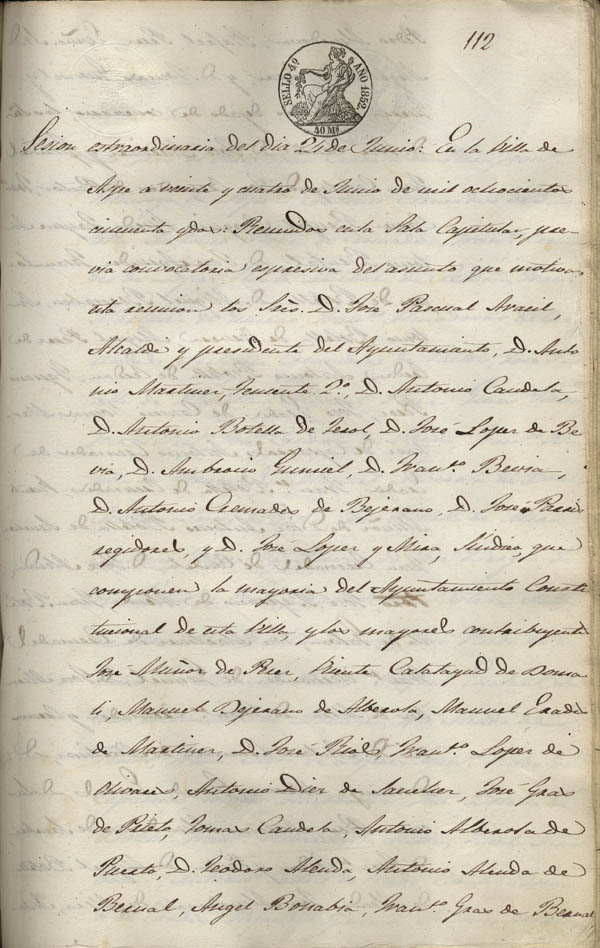 112
SELLO 4º AÑO 1852.
40 Ms
Sesion estraordinaria del dia 24 de Junio: En la Villa de
Aspe a veinte y cuatro de Junio de mil ochocientos
cincuenta y dos: Reunidos en la Sala Capitular, pre-
via convocatoria espresiva del asunto que motiva
esta reunion los Sres. D. José Pascual Aracil,
Alcalde y presidente del Ayuntamiento, D. Anto
nio Martinez, teniente 2º, D. Antonio Candela,
D. Antonio Botella de D. José Lopez de Be
viá, D. Ambrosio D. Franco. Beviá,
D. Antonio Cremades de Bejerano, D. José Pastor
regidores, y D. José Lopez y Mira, Sindico, que
componen la mayoria del Ayuntamiento Consti
tucional de esta Villa, y los mayores contribuyentes
José Muñoz de Perez, Vicente Calatayud de
Manuel Bejerano de Alberola, Manuel
de Martinez, D. José Rial, Franco. Lopez de
Olivares, Antonio Diez de Sanchez, José Gras
de Prieto, Tomas Candela, Antonio Alberola de
Puerto, D. Teodoro Alenda, Antonio Alenda de
Bernal, Angel Bonabia, Franco. Gras de Bernal